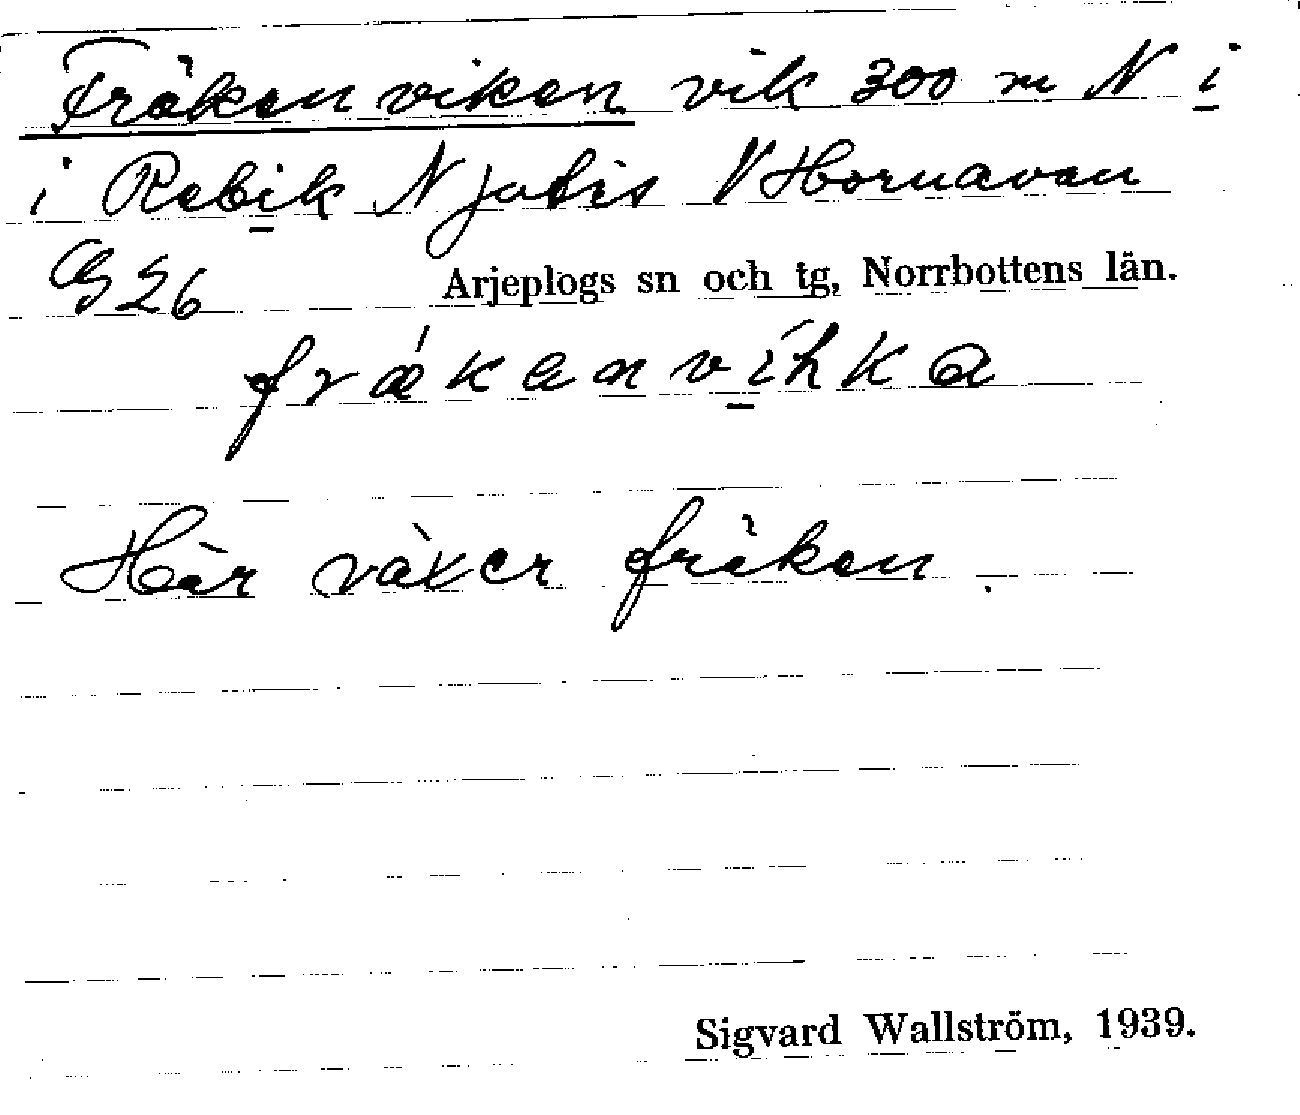 Fräkenviken vik 300 m N i
i Rebik Njatis V Hornavan
G 26 Arjeplogs sn och tg, Norrbottens län.
frǽkenvíhka
Här växer fräken.
Sigvard Wallström, 1939.